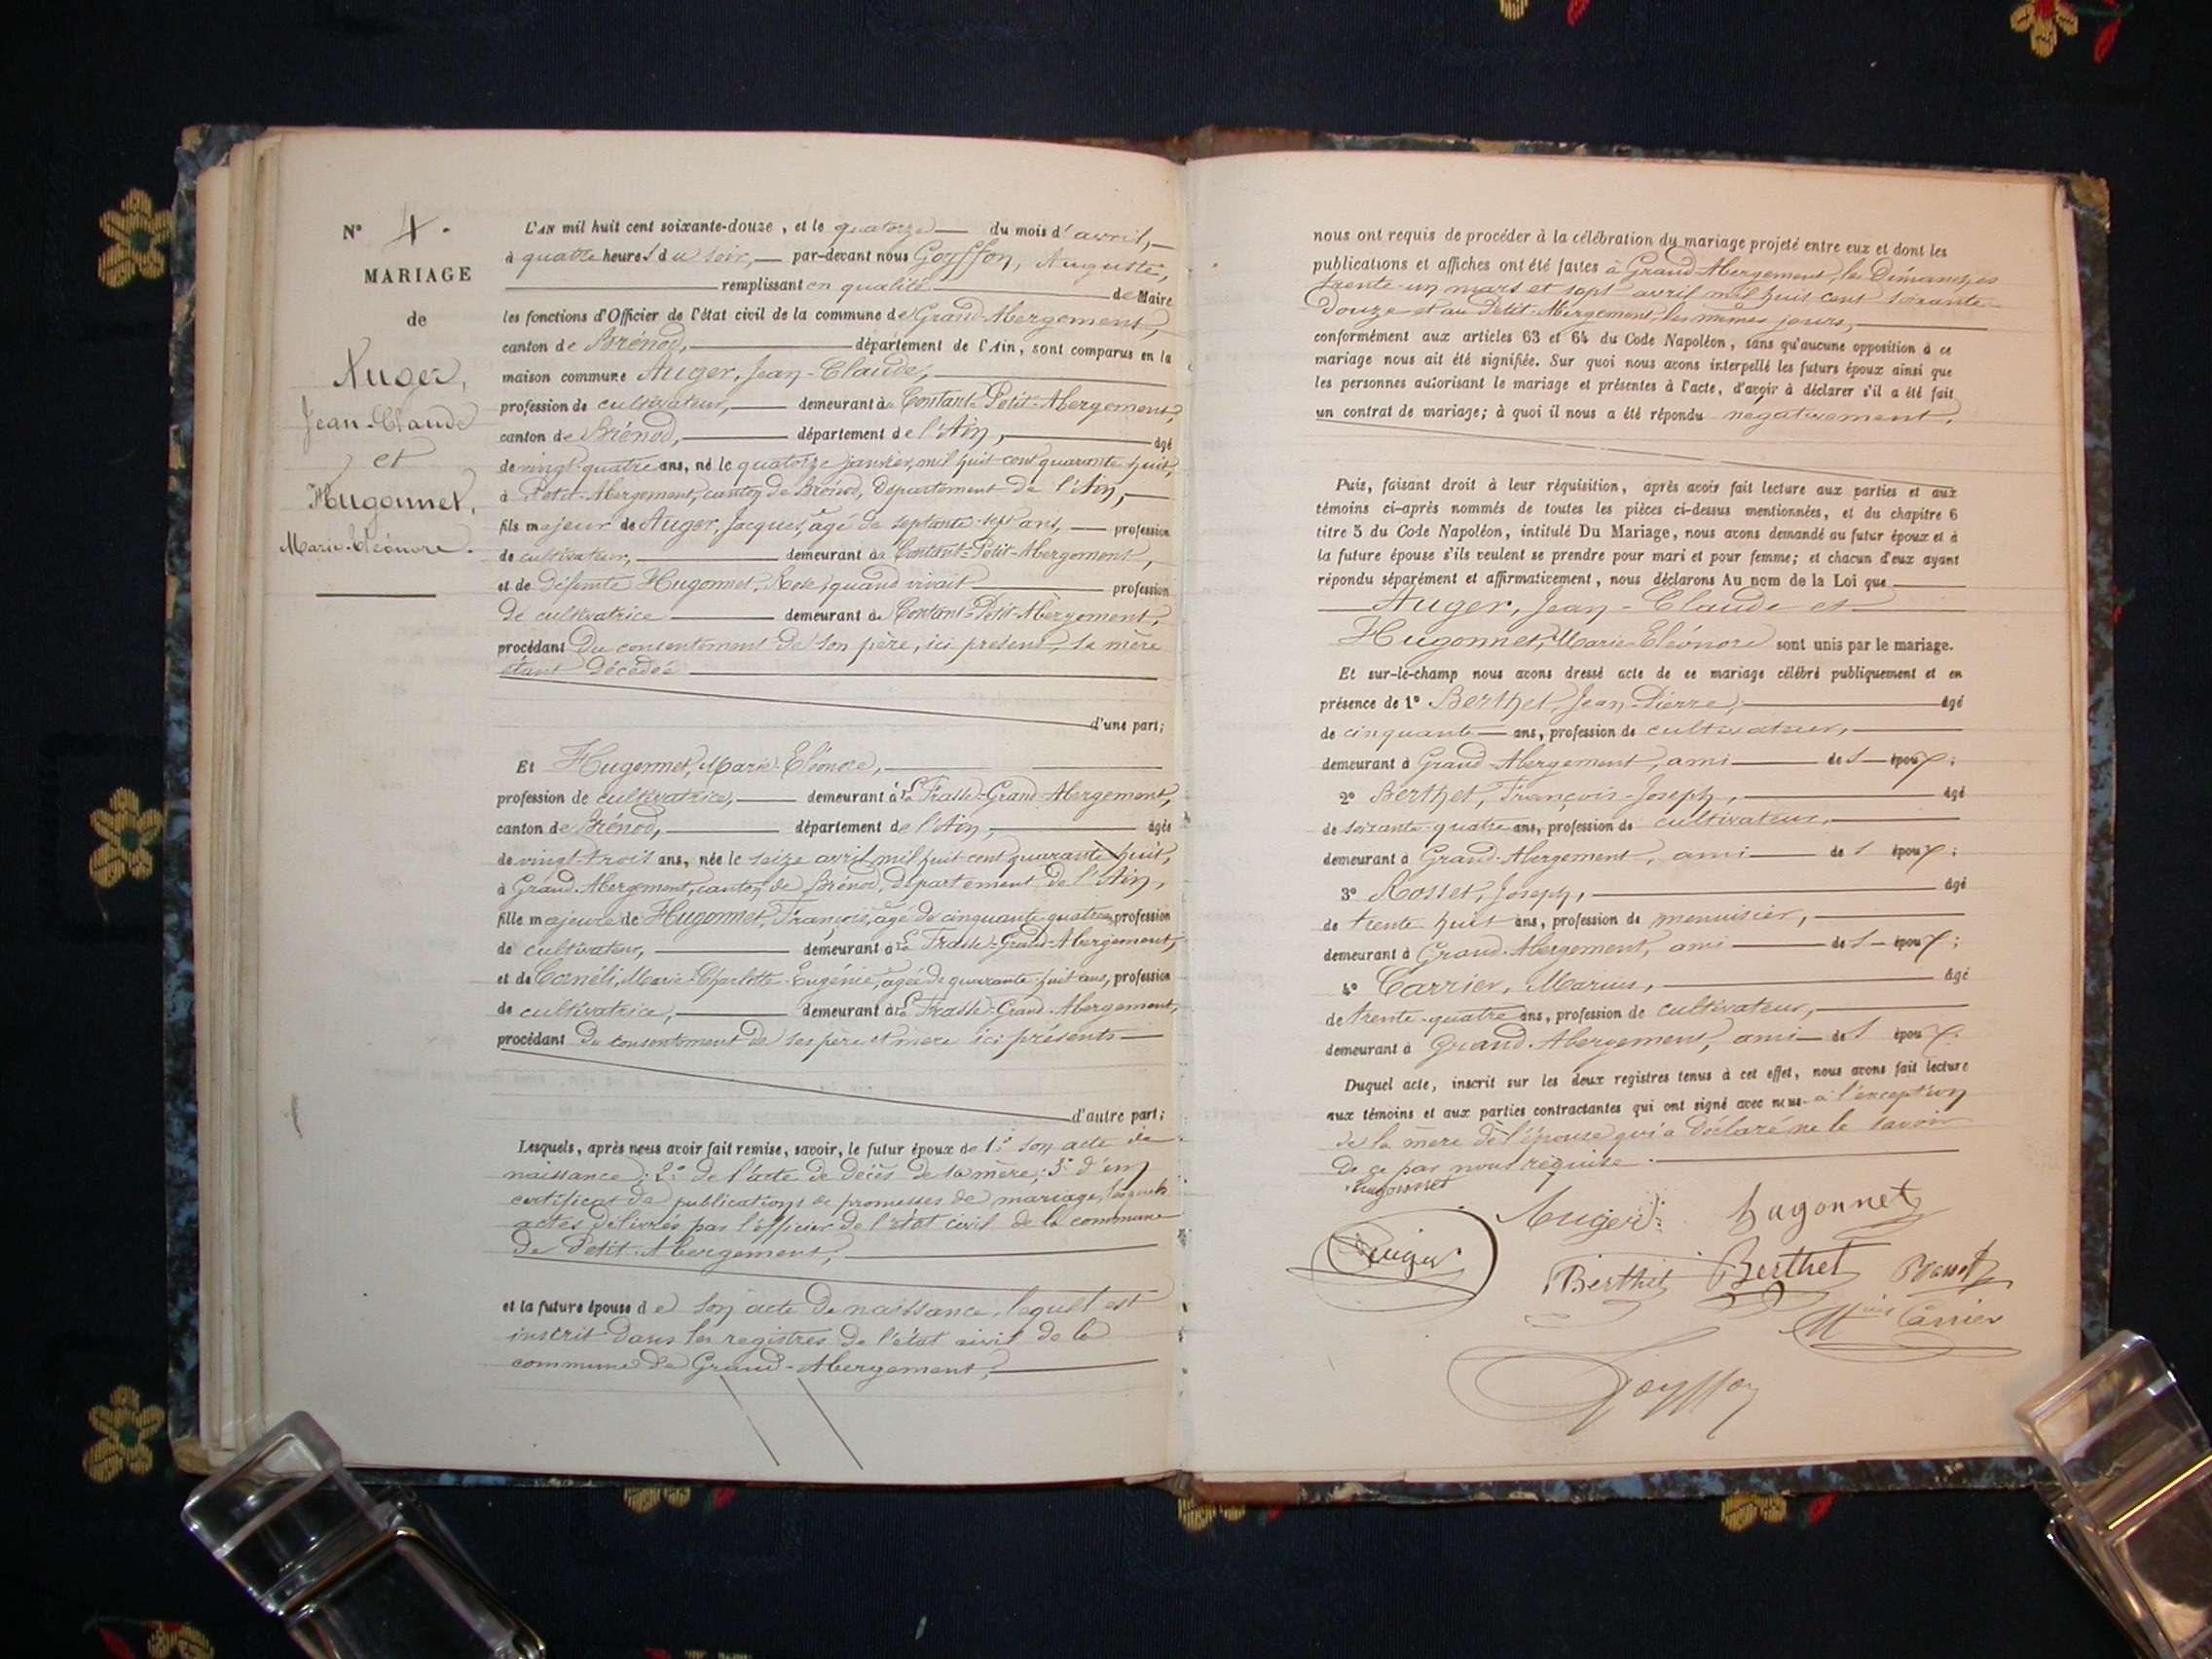 N° 4.
MARIAGE
de
Auger,
Jean-Claude
et
Hugonnet,
Marie-Eléonore.
L'AN mil huit cent soixante-douze, et le quatorze du mois d'avril,
à quatre heures du soir, par-devant nous Goyffon, Auguste,
remplissant en qualité de Maire
les fonctions d'Officier de l'état civil de la commune de Grand-Abergement,
canton de Brénod, département de l'Ain, sont comparus en la
maison commune Auger, Jean-Claude,
profession de cultivateur, demeurant à Contant-Petit-Abergement,
canton de Brénod, département de l'Ain, âgé
de vingt-quatre ans, né le quatorze janvier, mil huit cent quarante huit,
à Petit-Abergement, canton de Brénod, département de l'Ain,
fils majeur de Auger, Jacques, âgé de septante-sept ans, profession
de cultivateur, demeurant à Contant-Petit-Abergement,
et de défunte Hugonnet, Rose, quand vivait profession
de cultivatrice demeurant à Contant-Petit-Abergement,
procédant du consentement de son père, ici présent, sa mère
étant décédée
d'une part;
Et Hugonnet, Marie-Eléonore,
profession de cultivatrice, demeurant à La Frasse-Grand-Abergement,
canton de Brénod, département de l'Ain, âgée
de vingt-trois ans, née le seize avril mil huit cent quarante huit,
à Grand-Abergement, canton de Brénod, département de l'Ain,
fille majeure de Hugonnet, François, âgé de cinquante quatre ans, profession
de cultivateur, demeurant à La Frasse-Grand-Abergement,
et de Marie-Charlotte-Eugénie, âgée de quarante-huit ans, profession
de cultivatrice, demeurant à La Frasse-Grand-Abergement,
procédant du consentement de ses père et mère ici présents
d'autre part;
Lesquels, après nous avoir fait remise, savoir, le futur époux de 1° son acte de
naissance; 2° de l'acte de décès de sa mère; 3° d'un
certificat de publications de promesses de mariage, lesquels
actes délivrés par l'officier de l'état civil de la commune
de Petit-Abergement;
et la future épouse de son acte de naissance, lequel est
inscrit dans les registres de l'état civil de la
commune de Grand-Abergement,
nous ont requis de procéder à la célébration du mariage projeté entre eux et dont les
publications et affiches ont été faites à Grand-Abergement, les Dimanches
trente-un mars et sept avril mil huit cent soixante-
douze et au Petit-Abergement, les mêmes jours,
conformément aux articles 63 et 64 du Code Napoléon, sans qu'aucune opposition à ce
mariage nous ait été signifiée. Sur quoi nous avons interpellé les futurs époux ainsi que
les personnes autorisant le mariage et présentes à l'acte, d'avoir à déclarer s'il a été fait
un contrat de mariage; à quoi il nous a été répondu négativement.
Puis, faisant droit à leur réquisition, après avoir fait lecture aux parties et aux
témoins ci-après nommés de toutes les pièces ci-dessus mentionnées, et du chapitre 6
titre 5 du Code Napoléon, intitulé Du Mariage, nous avons demandé au futur époux et à
la future épouse s'ils veulent se prendre pour mari et pour femme; et chacun d'eux ayant
répondu séparément et affirmativement, nous déclarons Au nom de la Loi que
Auger, Jean-Claude et
Hugonnet, Marie-Eléonore sont unis par le mariage.
Et sur-le-champ nous avons dressé acte de ce mariage célébré publiquement et en
présence de 1° Berthet, Jean-Pierre, âgé
de cinquante ans, profession de cultivateur,
demeurant à Grand-Abergement, ami des époux;
2° Berthet, François-Joseph, âgé
de soixante-quatre ans, profession de cultivateur,
demeurant à Grand-Abergement, ami des époux;
3° Rosset, Joseph, âgé
de trente-huit ans, profession de menuisier,
demeurant à Grand-Abergement, ami des époux;
4° Carrier, Marius, âgé
de trente-quatre ans, profession de cultivateur,
demeurant à Grand-Abergement, ami des époux.
Duquel acte, inscrit sur les deux registres tenus à cet effet, nous avons fait lecture
aux témoins et aux parties contractantes qui ont signé avec nous à l'exception
de la mère de l'épouse qui a déclaré ne le savoir
de ce par nous requise.
hugonnet
Auger
hugonnet
Auger
Berthet
Berthet
Rosset
Mius Carrier
Goyffon